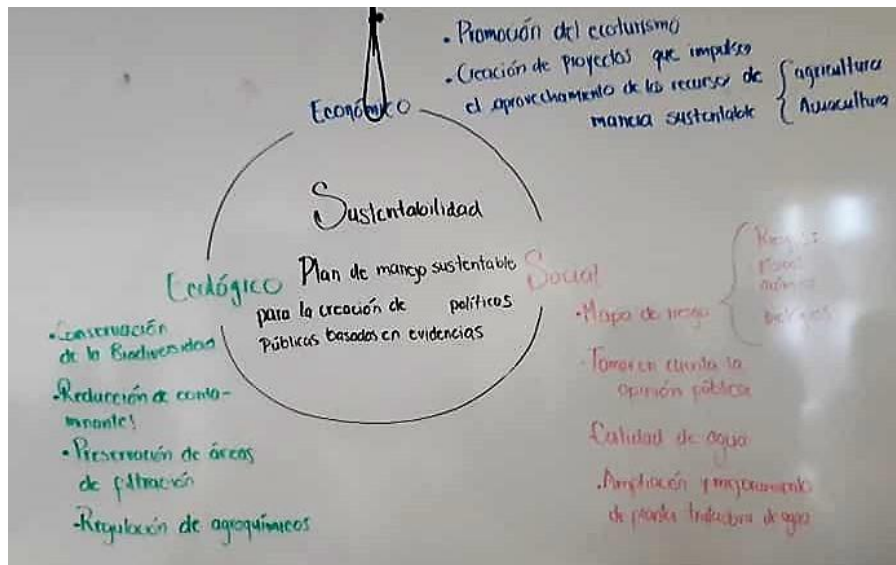 • Promoción del ecoturismo
• Creación de proyectos que impulse
el aprovechamiento de los recursos de
manera sustentable
agricultura
Acuacultura
Económico
Sustentabilidad
Plan de manejo sustentable
para la creación de políticas
Públicas basadas en evidencias
Ecológico
• Conservación
de la Biodiversidad
• Reducción de conta-
minantes
• Preservación de áreas
de filtración
• Regulación de agroquímicos
Social
• Mapa de riesgo
• Tomar en cuenta la
opinión pública
Calidad de agua
• Ampliación y mejoramiento
de planta tratadora de agua